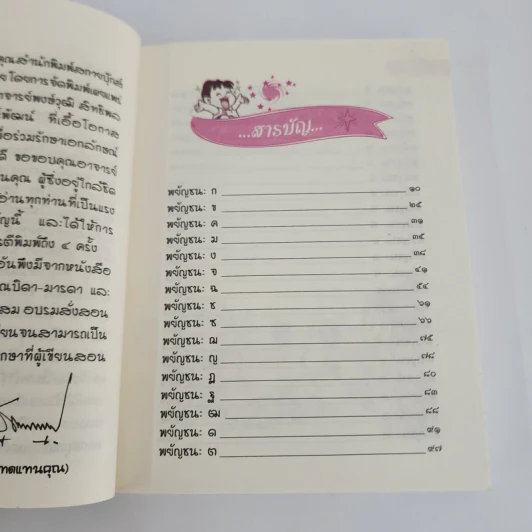 คุณสำนักพิมพ์สกายบุ๊กส์
โดยการจัดพิมพ์เผยแพร่
อาจารย์พงษ์วุฒิ สิทธิพล
พัฒน์ ที่เอื้อโอกาส
ร่วมรักษาเอกลักษณ์
ขอขอบคุณอาจารย์
คุณ ผู้ซึ่งอยู่ใกล้ชิด
อ่านทุกท่านที่เป็นแรง
นี้ และได้ให้การ
ตีพิมพ์ถึง ๔ ครั้ง
อันพึงมีจากหนังสือ
บิดา-มารดา และ
สม อบรมสั่งสอน
เขียนจนสามารถเป็น
ที่ผู้เขียนสอน
ทดแทนคุณ)
...สารบัญ...
พยัญชนะ ก ๑๐
พยัญชนะ ข ๒๕
พยัญชนะ ค ๓๑
พยัญชนะ ฆ ๓๕
พยัญชนะ ง ๓๘
พยัญชนะ จ ๔๑
พยัญชนะ ฉ ๕๔
พยัญชนะ ช ๖๑
พยัญชนะ ซ ๖๖
พยัญชนะ ฌ ๗๕
พยัญชนะ ญ ๗๘
พยัญชนะ ฎ ๘๐
พยัญชนะ ฐ ๘๓
พยัญชนะ ฒ ๘๘
พยัญชนะ ด ๙๑
พยัญชนะ ต ๙๗